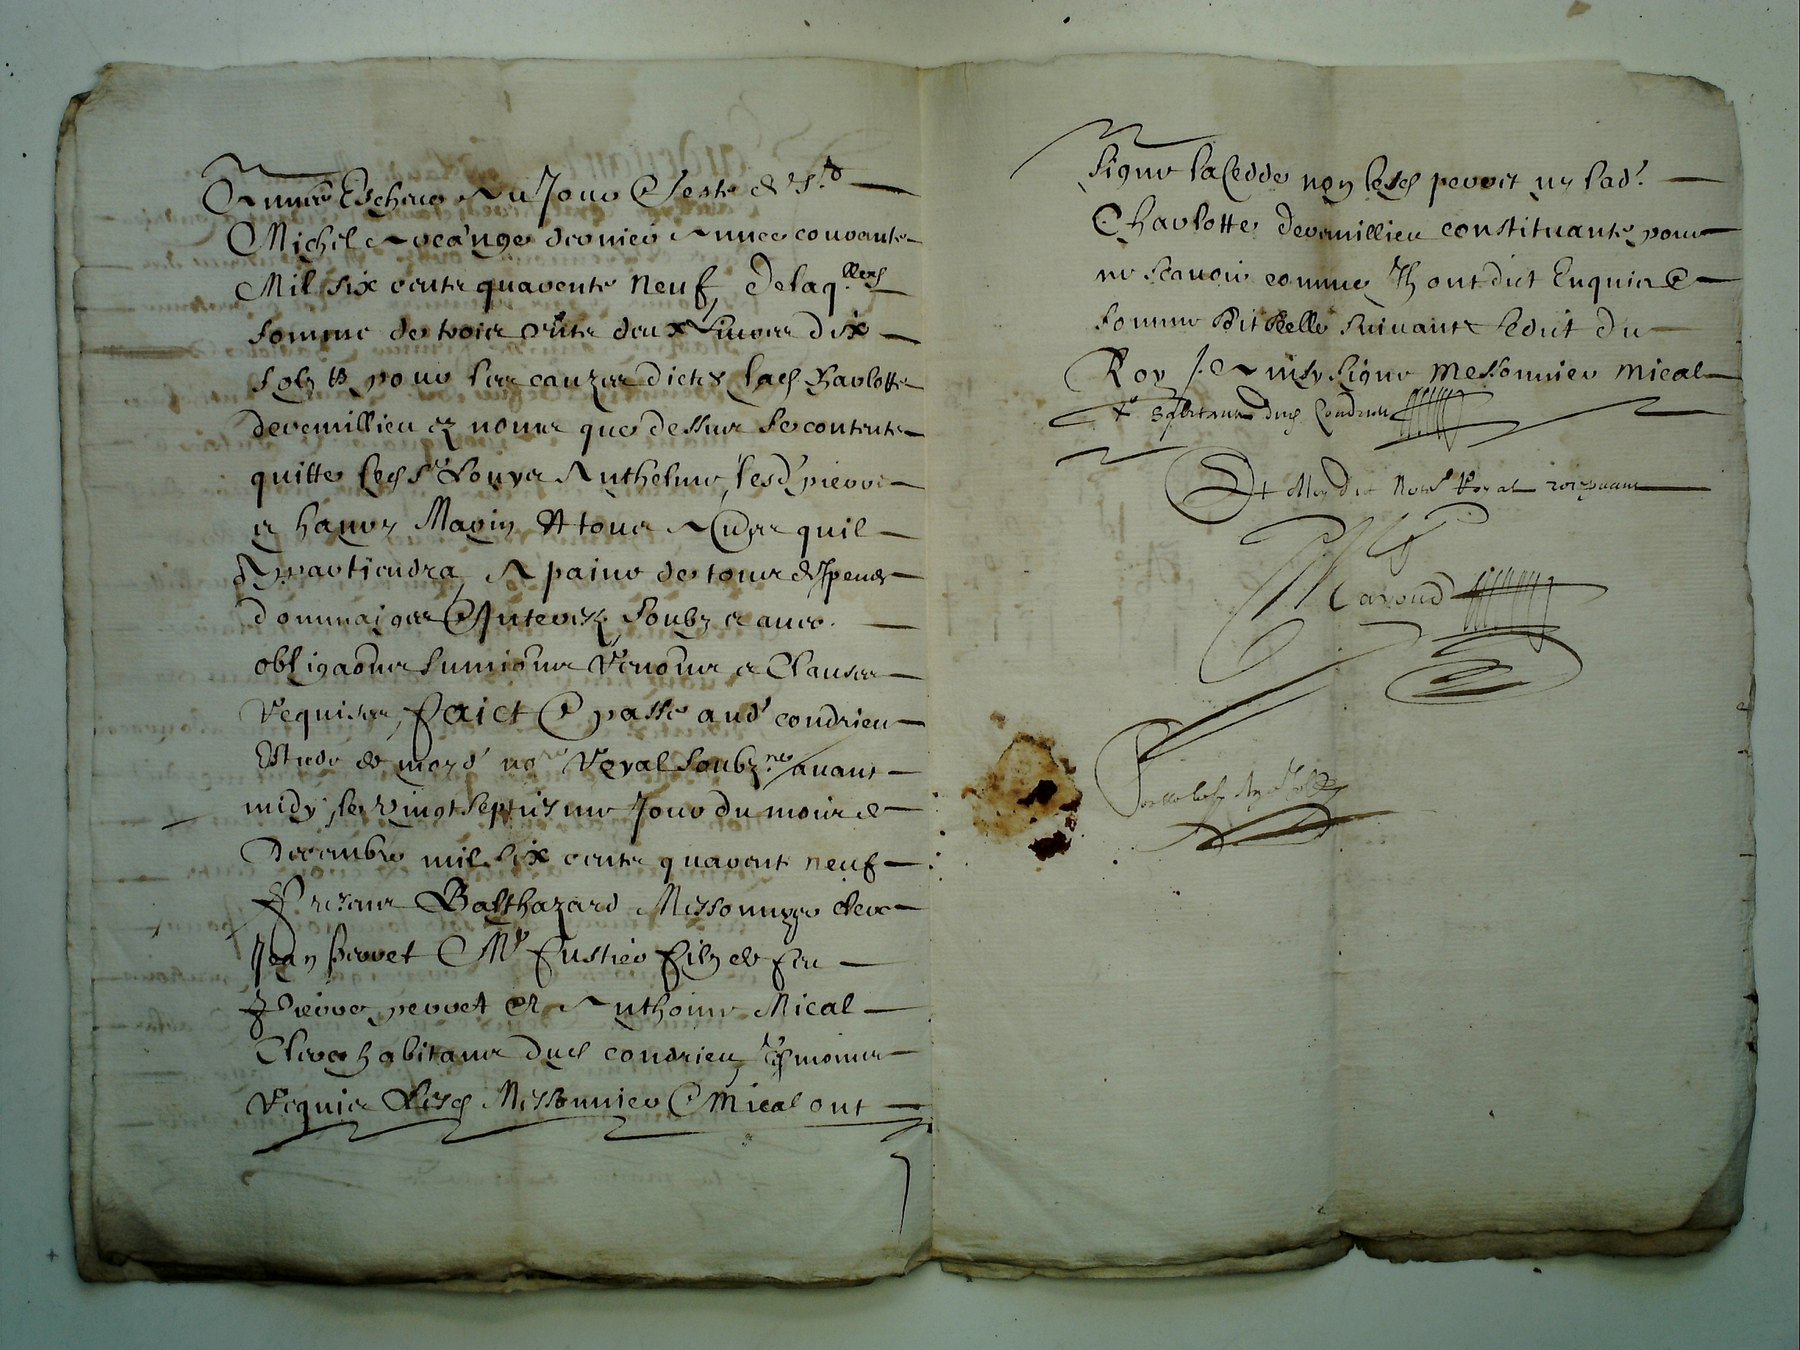 Annee Escheue Au Jour & feste de St
Michel Archange dernier Annee courante
Mil six centz quarente neuf, De laqlle
somme de trois centz deux Liures dix
solz tz pour les cauzes dictes lad Charlotte
devermillieu ez noms que dessus se contente
quitte led Sr Louys Anthelme, lesd pierre
et hanry Marin Et tous Aultres quil
Appartiendra, A paine de tous despens
dommaiges & Interestz, soubz et auec
obligaons submions renons et Clauses
requises, faict & passe aud condrieu
Estude de moyd nore Royal soubzne auant
midy, le vingt septiesme Jour du mois de
Decembre mil six centz quarent neuf
Presens Balthazard Messonnyer clerc
Jean perret Me fustier filz de feu
Pierre perret et Anthoine Mical
Clerc habitans dud condrieu, tesmoins
requis Lesd Messonnier & Mical ont
signe la Cedde non led perret ny lad.
Charlotte devermillieu constituante pour
ne scauoir comme Ilz ont dict Enquis &
somme dit telle suiuant Ledict du
Roy, Ainsy signe Messonnier Mical
habitans dud Condrieu
Et Moydit Nore Royal recepuant
Maroud